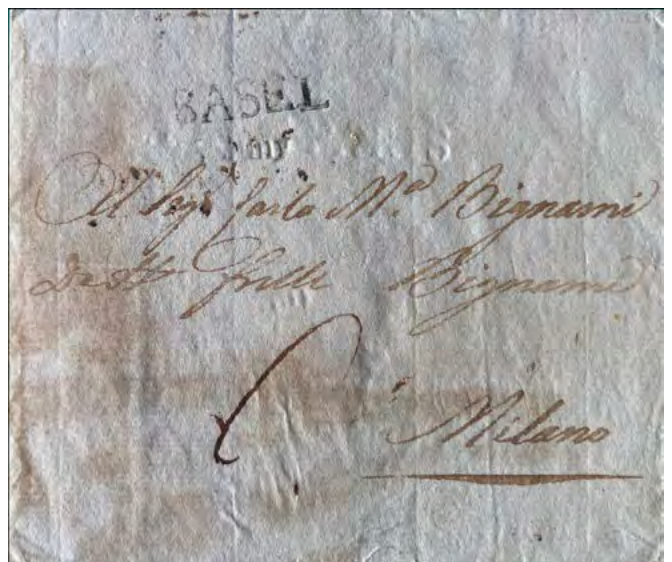 BASEL
Al Sig. Carlo M.ª Bignami
Frelli Bignami
Milano